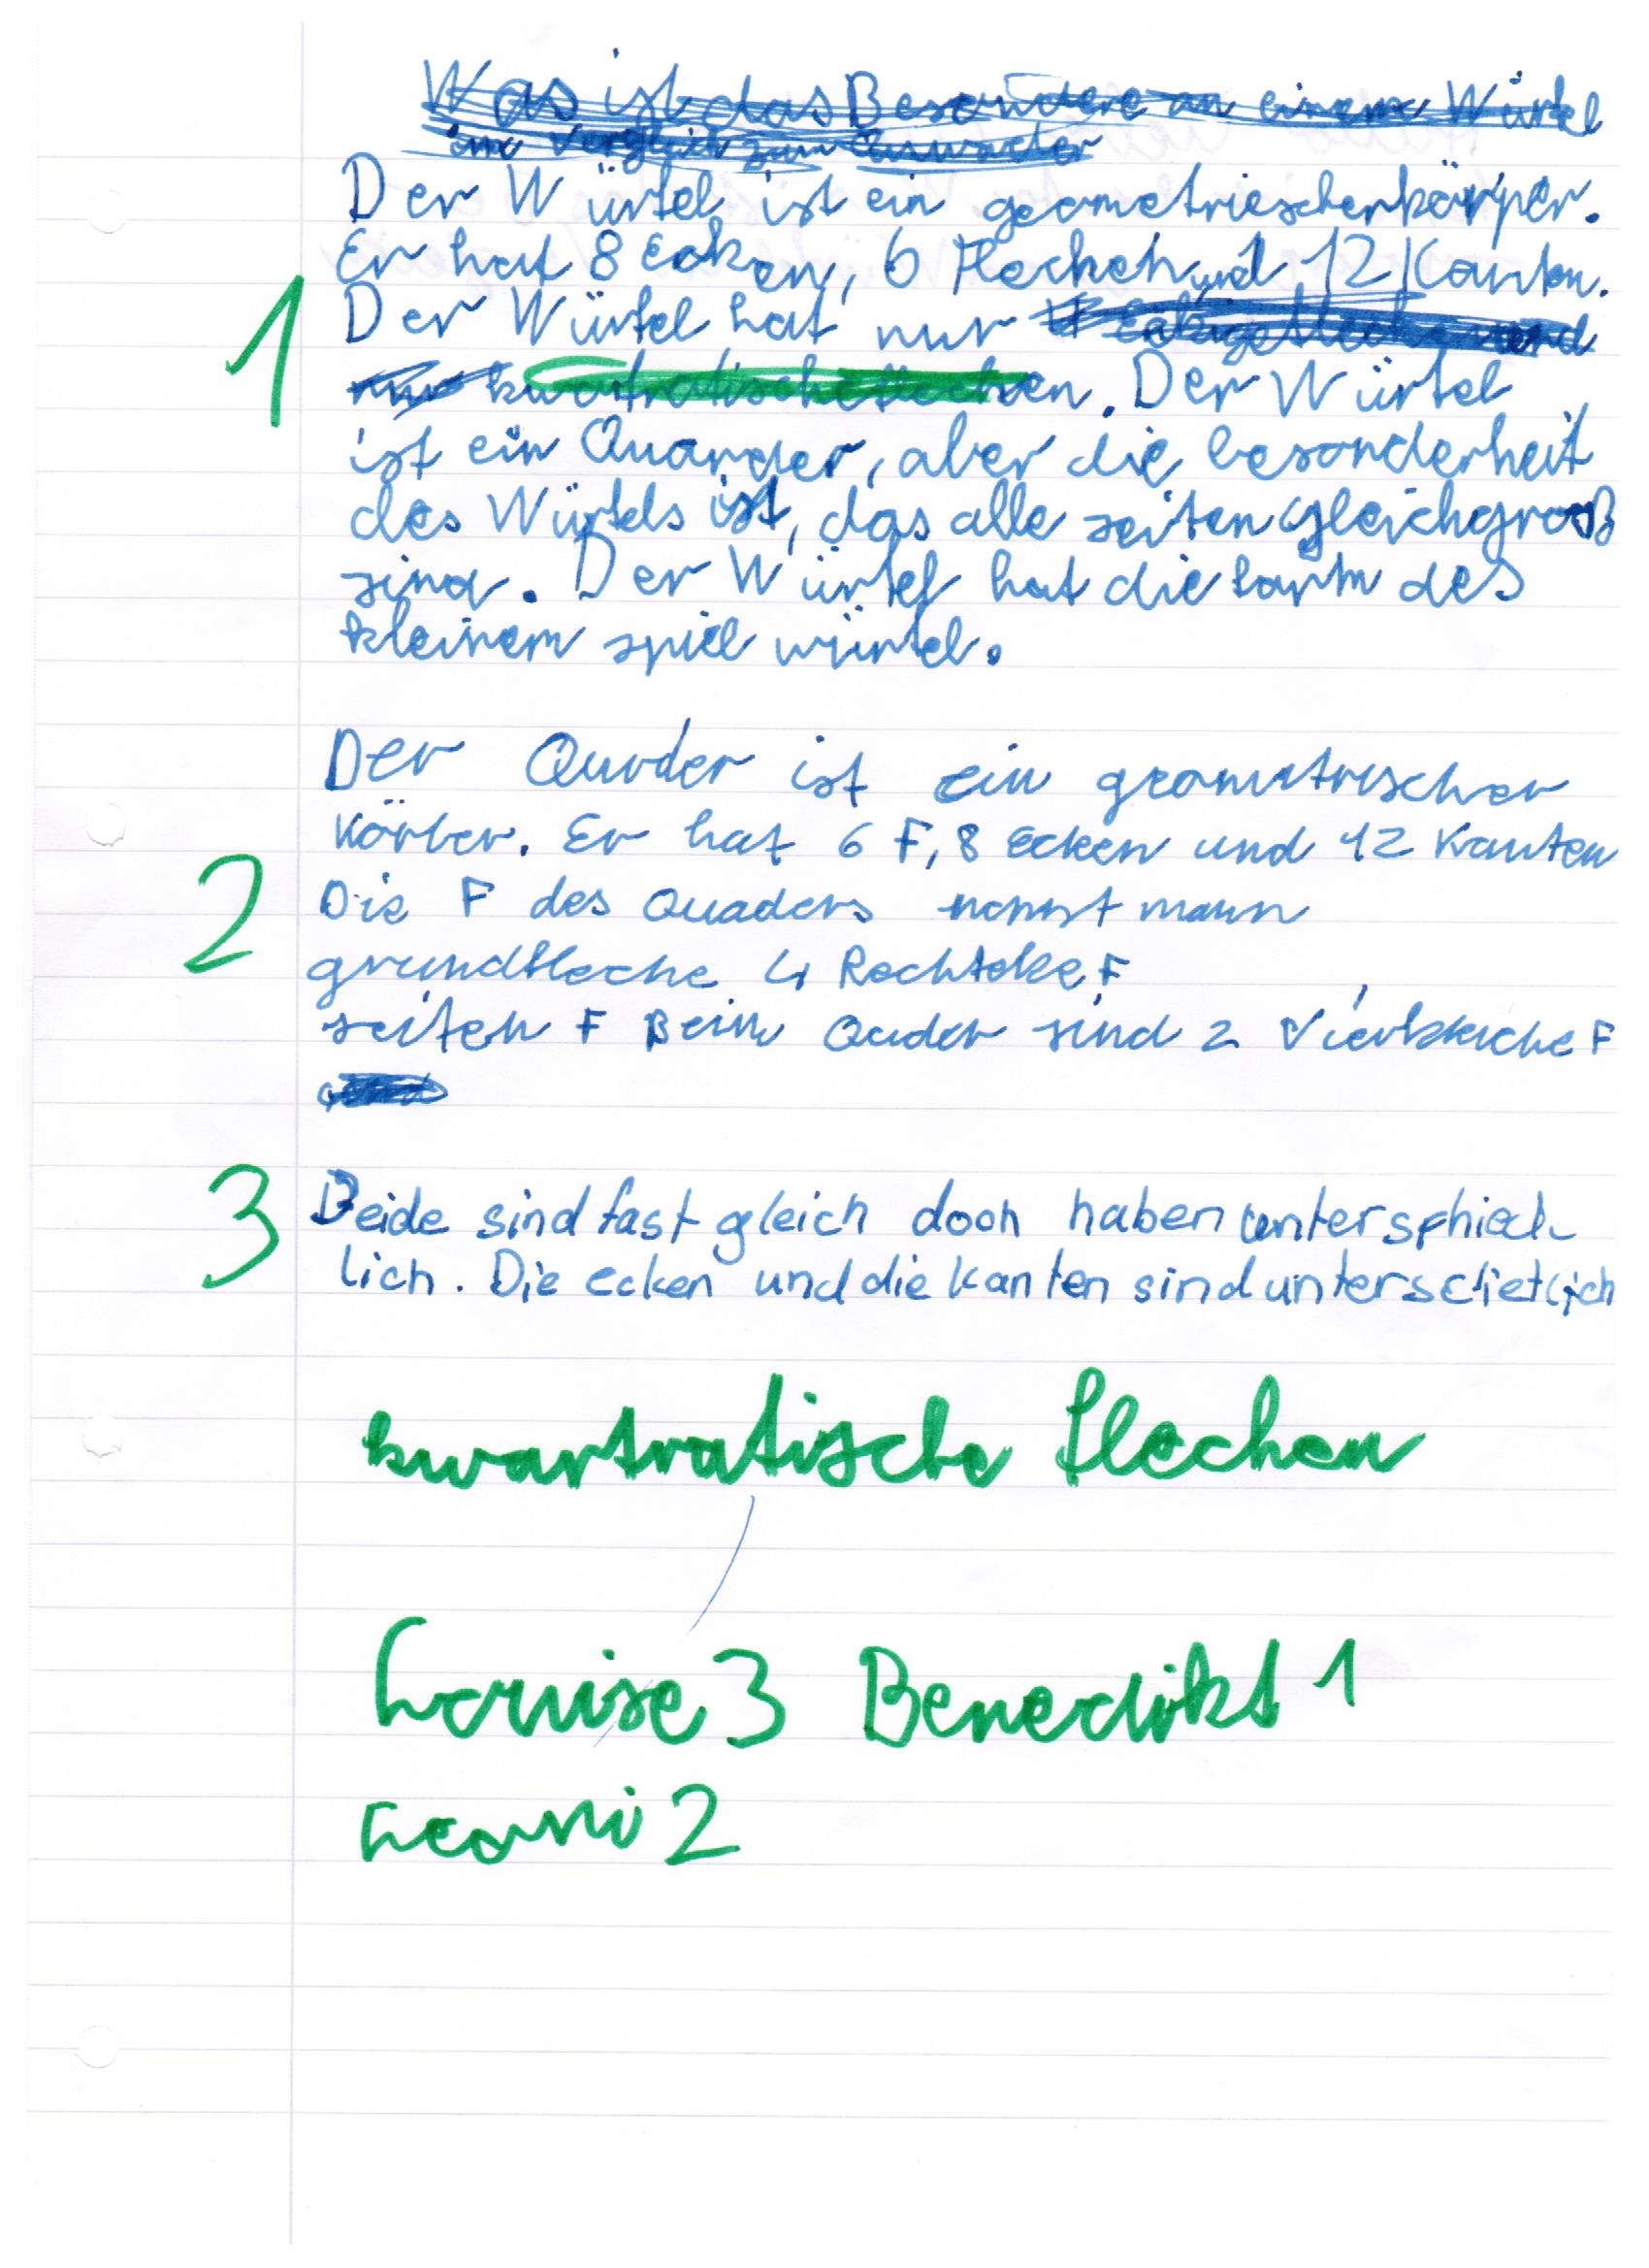 Was ist das Besondere an einem Würfel
im Vergleich zum
Der Würfel ist ein geometriescherkörper.
Er hat 8 Ecken, 6 Flechen und 12 Kanten.
Der Würfel hat nur
nur kwartratischeflechen. Der Würfel
ist ein Quarder, aber die besonderheit
des Würfels ist, das alle seiten gleichgroß
sind. Der Würfel hat die form des
kleinem spiel würfel.
1
Der Qurder ist ein geometrischer
Körber. Er hat 6 F, 8 Ecken und 12 Kanten
Die F des Quaders nennt mann
grundfleche 4 Rechteke F
seiten F Beim Quder sind 2 F
2
Beide sind fast gleich doch haben unterschied-
lich. Die ecken und die kanten sind unterscietlich
3
kwartratische flechen
Louise 3 Benedikt 1
Leoni 2